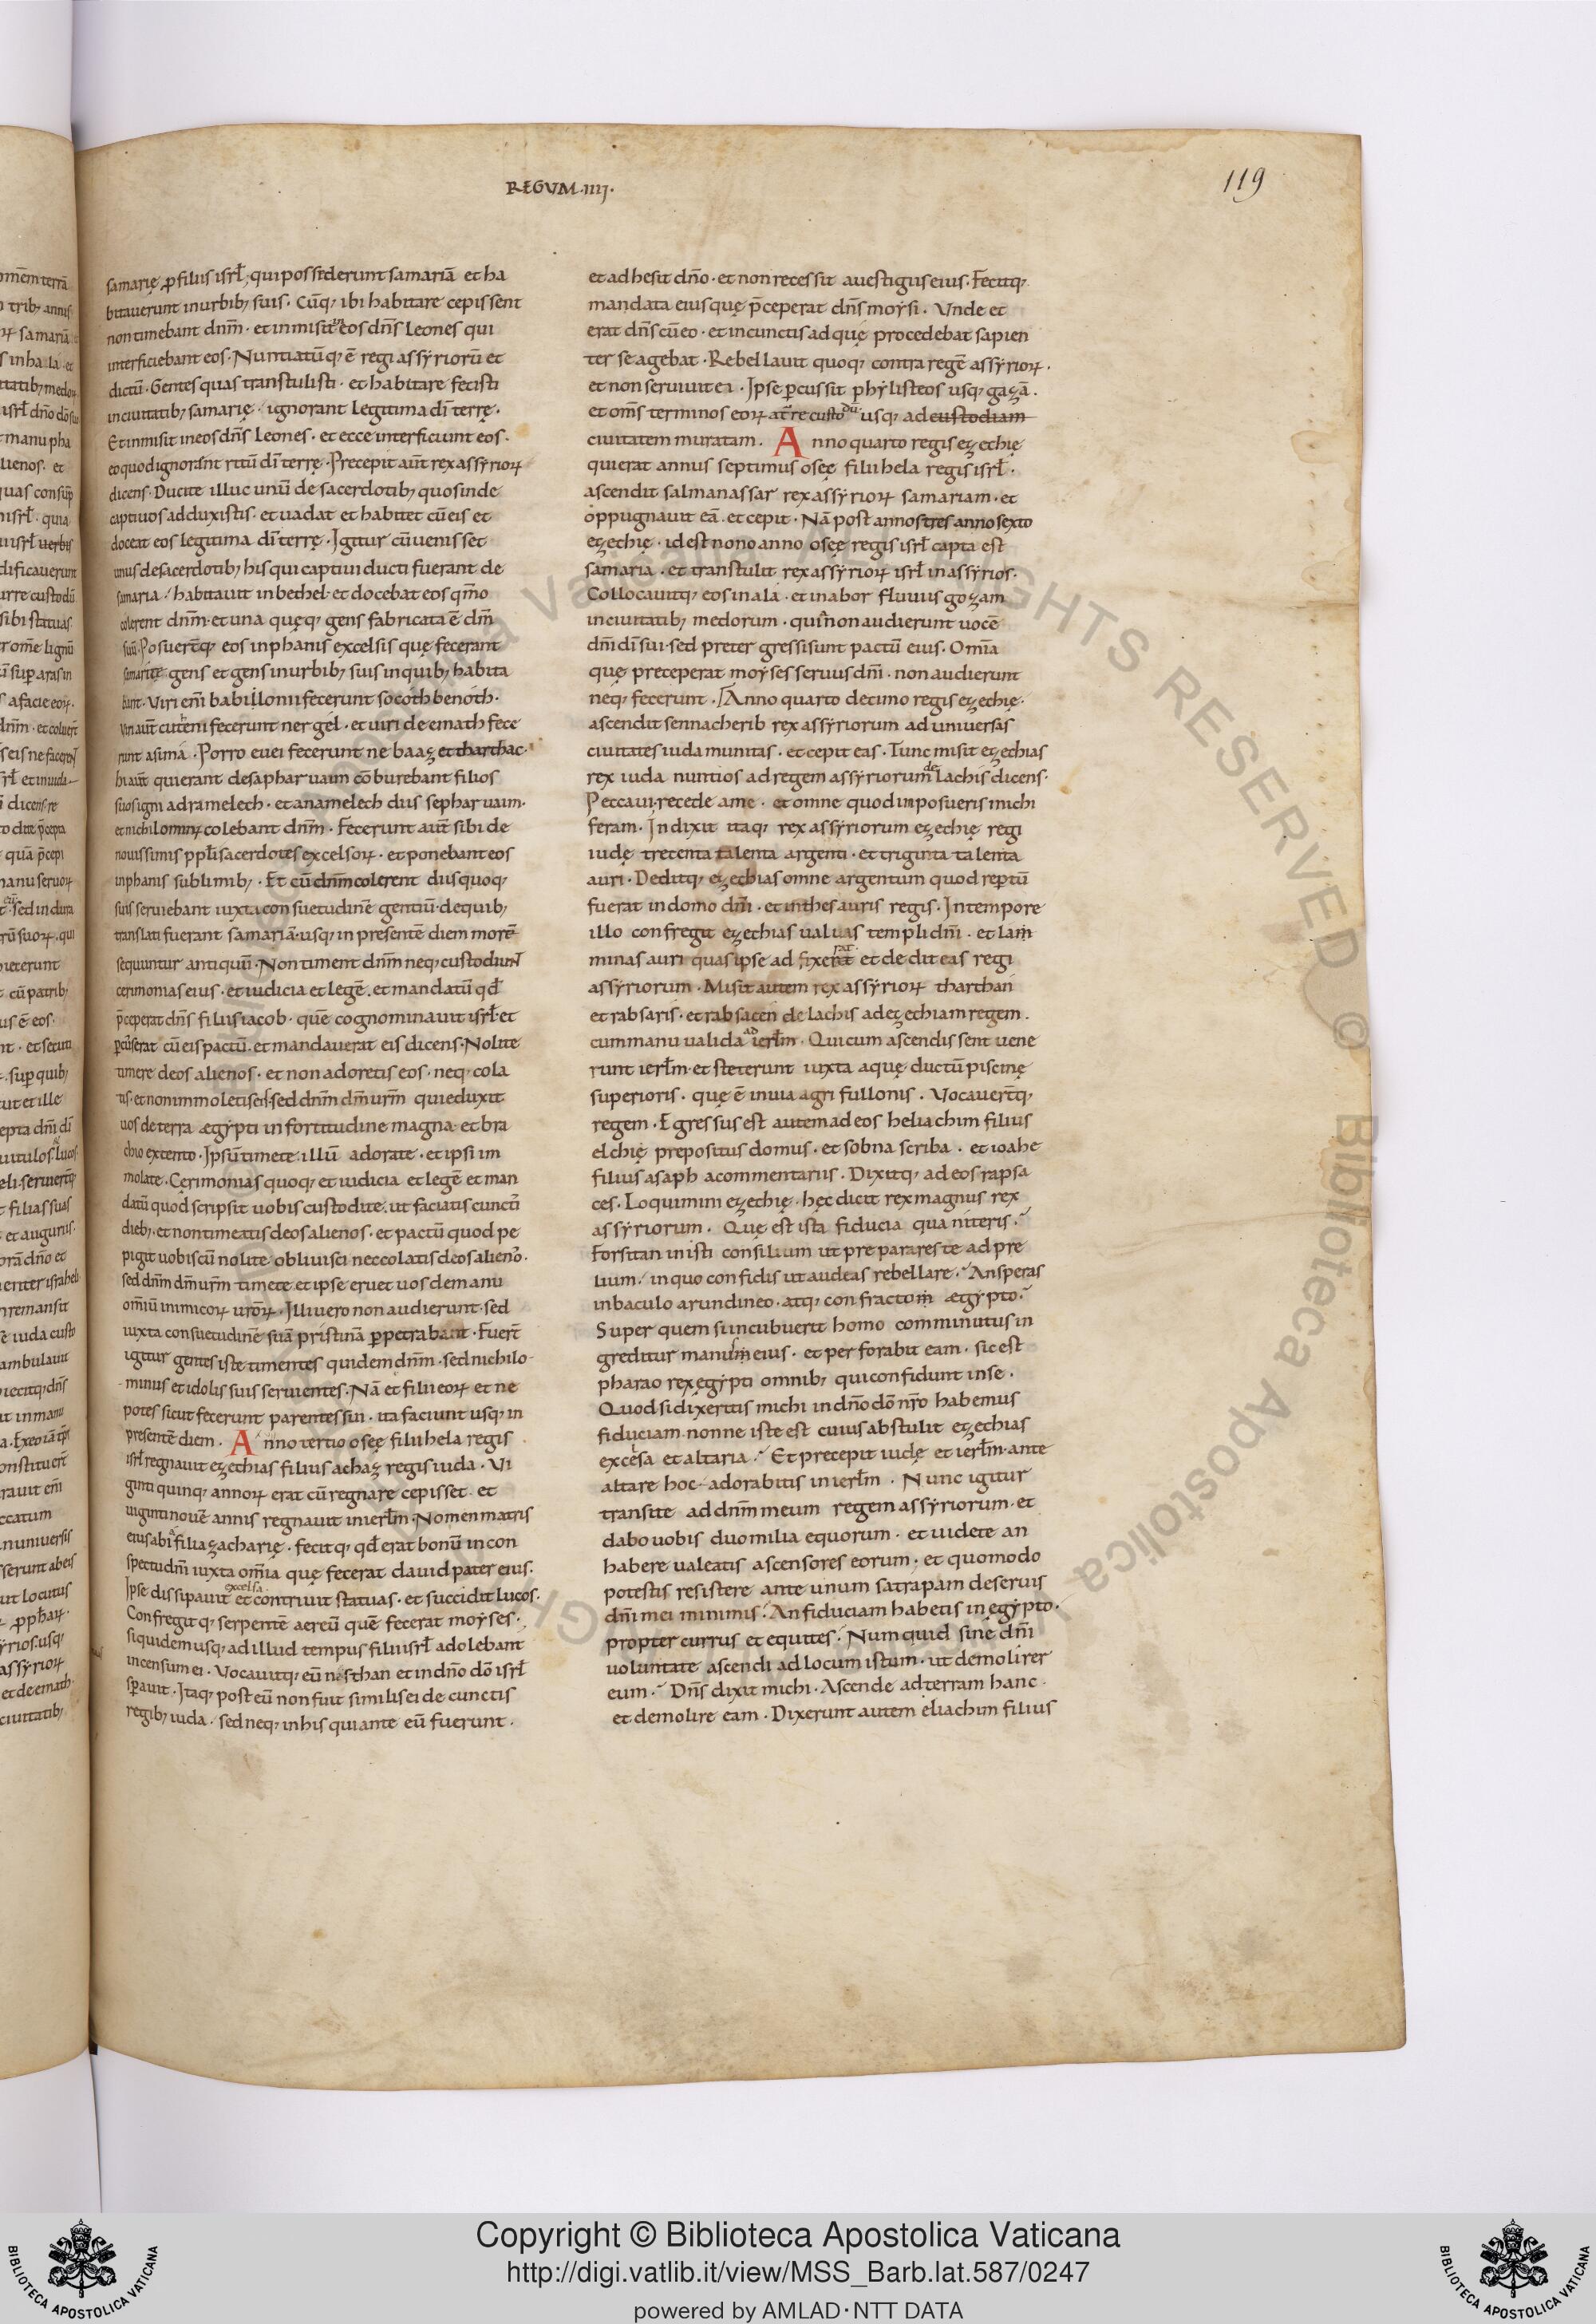 REGVM·IIIJ·
119
samarię ꝓ filiis isrł, qui possederunt samariā et ha
bitauerunt in urbibꝫ suis. Cūqꝫ ibi habitare cepissent
non timebant dnm̄. et inmisit eos dn̄s Leones qui
interficiebant eos. Nuntiatūqꝫ ē regi assyriorū et
dictū. Gentes quas transtulisti. et habitare fecisti
in ciuitatibꝫ samarię. ignorant Legitima dī terrę.
Et inmisit in eos dn̄s Leones. et ecce interficiunt eos.
eo quod ignorent ritū dī terrę. Precepit aūt rex assyrioꝝ
dicens. Ducite illuc unū de sacerdotibꝫ quos inde
captiuos adduxistis. et uadat et habitet cū eis et
doceat eos legitima dī terrę. Igitur cū uenisset
unus de sacerdotibꝫ his qui captiui ducti fuerant de
samaria. habitauit in bethel. et docebat eos qm̄o
colerent dnm̄. et una quęqꝫ gens fabricata ē dm̄
suū. Posuertqꝫ eos in phanis excelsis quę fecerant
samaritę gens et gens in urbibꝫ suis in quibꝫ habita
bant. Viri enī babilonii fecerunt socoth benoth.
Viri aūt cuteni fecerunt nergel. et uiri de emath fece
runt asima. Porro euei fecerunt nebaaz et tharthac.
hi aūt qui erant de sapharuaim cōburebant filios
suos igni adramelech. et anamelech diis sepharuaim.
et nichilominꝰ colebant dnm̄. Fecerunt aūt sibi de
nouissimis ppłi sacerdotes excelsoꝝ. et ponebant eos
in phanis sublimibꝫ. Et cū dnm̄ colerent diis quoqꝫ
suis seruiebant iuxta consuetudinē gentiū. de quibꝫ
translati fuerant samariā. usqꝫ in presentē diem morē
sequuntur antiquū. Non timent dnm̄ neqꝫ custodiunt
cerimonias eius. et iudicia et legē. et mandatū qđ
p̄ceperat dn̄s filiis iacob. quē cognominauit isrł. et
ꝑcuserat cū eis pactū. et mandauerat eis dicens. Nolite
timere deos alienos. et non adoretis eos. neqꝫ cola
tis. et non immoletis eis. sed dnm̄ dm̄ urm̄ qui eduxit
uos de terra ægypti in fortitudine magna. et bra
chio extento. Ipsū timete. illū adorate. et ipsi im
molate. Cęrimonias quoqꝫ et iudicia et legē et man
datū quod scripsit uobis custodite. ut faciatis cuncti
diebꝫ. et non timeatis deos alienos. et pactū quod pe
pigit uobiscū nolite obliuisci nec colatis deos alienos.
sed dnm̄ dm̄ urm̄ timete. et ipse eruet uos de manu
om̄iū inimicoꝝ urōꝝ. Illi uero non audierunt. sed
iuxta consuetudinē suā pristinā ꝑpetrabant. Fuert̄
igitur gentes iste timentes quidem dnm̄. sed nichilo
minus et idolis suis seruientes. Nā et filii eoꝝ et ne
potes sicut fecerunt parentes sui. ita faciunt usqꝫ in
presentē diem. Anno tertio oseę filii hela regis
isrł regnauit ezechias filius achaz regis iuda. Vi
ginti quinqꝫ annoꝝ erat cū regnare cepisset. et
uiginti nouē annis regnauit in ierłm. Nomen matris
eius abia filia zacharię. fecitqꝫ qđ erat bonū in con
spectu dn̄i iuxta om̄ia quę fecerat dauid pater eius.
Ipse dissipauit excelsa et contriuit statuas. et succidit lucos.
Confregitqꝫ serpentē aereū quē fecerat moyses.
siquidem usqꝫ ad illud tempus filii isrł adolebant
incensum ei. Vocauitqꝫ eū nesthan et in dn̄o dō isrł
sperauit. Itaqꝫ post eū non fuit similis ei de cunctis
regibꝫ iuda. sed neqꝫ in his qui ante eū fuerunt.
et adhesit dn̄o. et non recessit a uestigiis eius. Fecitqꝫ
mandata eius quę p̄ceperat dn̄s moysi. Vnde et
erat dn̄s cū eo. et in cunctis ad quę procedebat sapien
ter se agebat. Rebellauit quoqꝫ contra regē assyrioꝝ.
et non seruiuit ei. Ipse ꝑcussit phylisteos usqꝫ gazā.
et om̄s terminos eoꝝ at̄re custodū usqꝫ ad custodiam
ciuitatem muratam. Anno quarto regis ezechię
qui erat annus septimus oseę filii hela regis isrł.
ascendit salmanassar rex assyrioꝝ samariam. et
oppugnauit eā. et cepit. Nā post annos tres anno sexto
ezechię. id est nono anno oseę regis isrł capta est
samaria. et transtulit rex assyrioꝝ isrł in assyrios.
Collocauitqꝫ eos in ala. et in abor fluuiis gozam
in ciuitatibꝫ medorum. qui non audierunt uocē
dn̄i dī sui. sed pretergressi sunt pactū eius. Om̄ia
quę preceperat moyses seruus dn̄i. non audierunt
neqꝫ fecerunt. Anno quarto decimo regis ezechię.
ascendit sennacherib rex assyriorum ad uniuersas
ciuitates iuda munitas. et cepit eas. Tunc misit ezechias
rex iuda nuntios ad regem assyriorum de lachis dicens.
Peccaui. recede a me. et omne quod inposueris michi
feram. Indixit itaqꝫ rex assyriorum ezechię regi
iudę trecenta talenta argenti. et triginta talenta
auri. Deditqꝫ ezechias omne argentum quod reptū
fuerat in domo dn̄i. et in thesauris regis. In tempore
illo confregit ezechias ualuas templi dn̄i. et lam
minas auri quas ipse adfixerat et dedit eas regi
assyriorum. Misit autem rex assyrioꝝ tharthan
et rabsaris. et rabsacen de lachis ad ezechiam regem.
cum manu ualida ad ierłm. Qui cum ascendissent uene
runt ierłm. et steterunt iuxta aquę ductū piscinę
superioris. quę ē in uia agri fullonis. Vocauertqꝫ
regem. Egressus est autem ad eos heliachim filius
elchię prepositus domus. et sobna scriba. et ioahe
filius asaph a commentariis. Dixitqꝫ ad eos rapsa
ces. Loquimini ezechię. hęc dicit rex magnus rex
assyriorum. Quę est ista fiducia qua niteris.
Forsitan inisti consilium ut preparareste ad pre
lium. in quo confidis ut audeas rebellare. An speras
in baculo arundineo. atqꝫ confracto in ægypto.
Super quem si incubuerit homo comminutus in
greditur manum eius. et perforabit eam. sic est
pharao rex ęgypti omnibꝫ qui confidunt in se.
Quod si dixeritis michi in dn̄o dō nr̄o habemus
fiduciam. nonne iste est cuius abstulit ezechias
excelsa et altaria. Et precepit iudę et ierłm. ante
altare hoc adorabitis in ierłm. Nunc igitur
transite ad dnm̄ meum regem assyriorum. et
dabo uobis duo milia equorum. et uidete an
habere ualeatis ascensores eorum. et quomodo
potestis resistere ante unum satrapam de seruis
dn̄i mei minimis. An fiduciam habetis in ęgypto.
propter currus et equites. Numquid sine dn̄i
uoluntate ascendi ad locum istum. ut demolirer
eum. Dn̄s dixit michi. Ascende ad terram hanc.
et demolire eam. Dixerunt autem eliachim filius
Copyright © Biblioteca Apostolica Vaticana
http://digi.vatlib.it/view/MSS_Barb.lat.587/0247
powered by AMLAD·NTT DATA